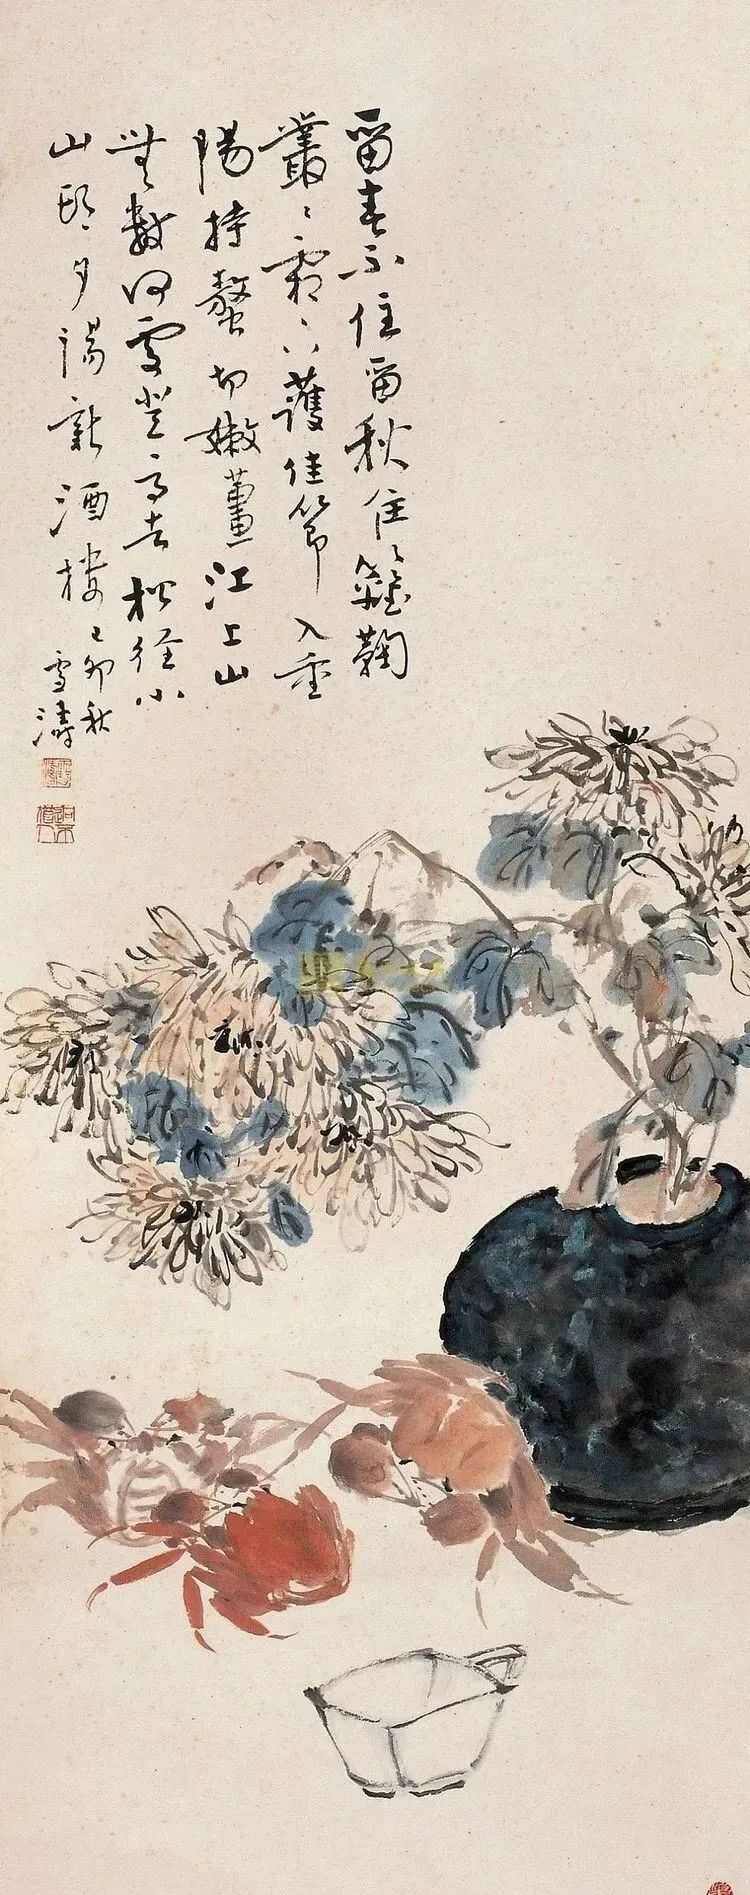 留春不住留秋住籬鞠
叢叢霜下護佳節入重
陽持螯切嫩薑江上山
無數何處登高去松徑小
山邱夕陽新酒樓乙卯秋
雪濤